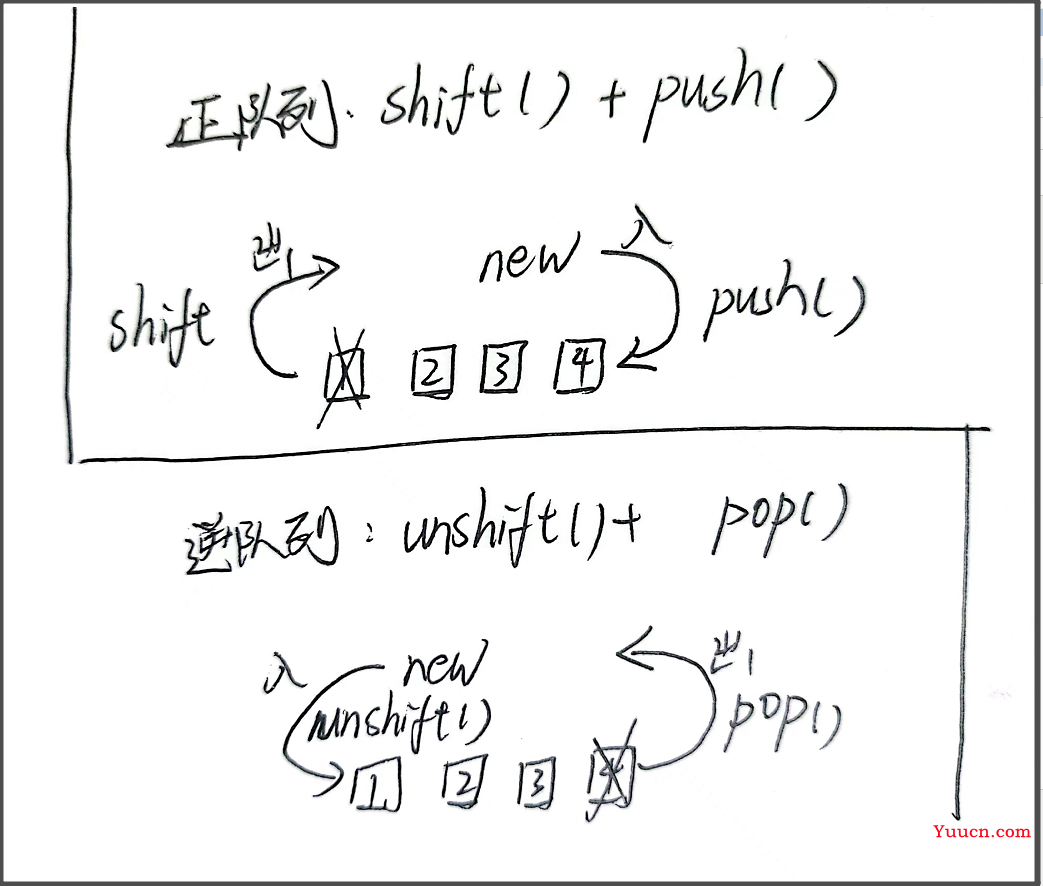 正队列: shift() + push()
出
new
入
shift
push()
1 2 3 4
逆队列: unshift() + pop()
入
new
出
unshift()
pop()
1 2 3 4
Yuucn.com